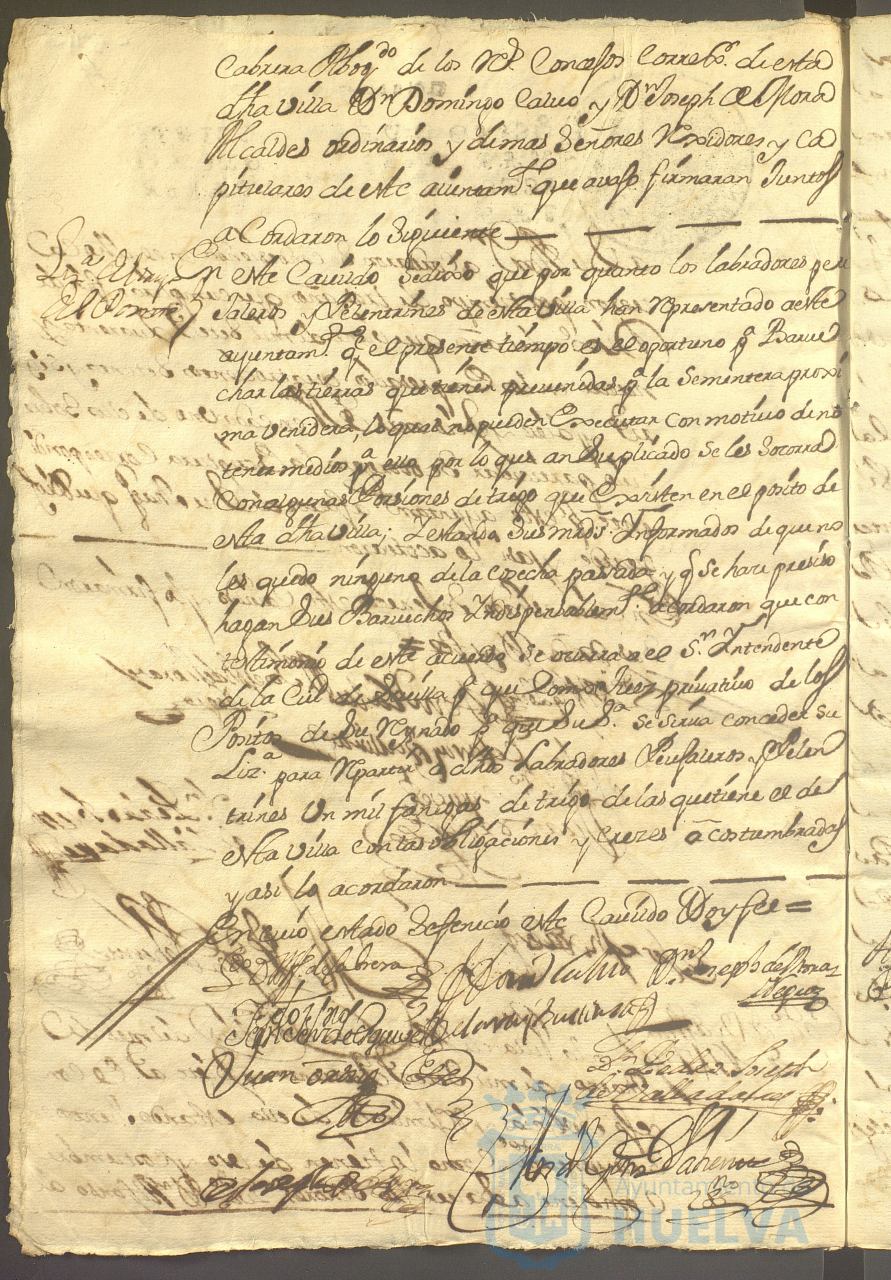 Cabrera Abog.do de los R.s Consejos Correg.r de esta
dha villa Dn Domingo Calvo y Dn Joseph de Mora
Alcaldes ordinarios y demas Señores Rexidores y Ca
pitulares de este ayuntam.to que avajo firmaran Juntos
acordaron lo Siguiente
En este Cavildo Se dixo que por quanto los labradores peu
Jaleros y Pelentrines de esta villa han representado a este
ayuntam.to q.e el presente tiempo es el oportuno p.a Barve
char las tierras que tienen prevenidas p.a la Sementera proxi
ma venidera, lo qual no pueden Executar con motivo de no
tener medios p.a ello por lo que an Suplicado se les Socorra
con algunas Porsiones de trigo que Existen en el posito de
esta dha villa; Y estando Sus mrds. Informados de que no
les quedo ninguno de la cosecha pasada y q.e Se hace presiso
hagan Sus Barvechos Indispensablem.te acordaron que con
testimonio de este acuerdo Se ocurra a el S.or Yntendente
de la Ciud de Sevilla Juez privativo de los
Positos de Su Reynado p.a que Su S.a Se sirva conceder Su
Liz.a para Repartir a dhos Labradores Peujaleros y Pelen
trines Un mil fanegas de trigo de las que tiene el de
esta villa con las obligaciones y Crezes acostumbradas
y así lo acordaron
En cuio estado Se fenecio este Cavildo Doy fee =
Cabrera
Dom.o Calvo Dn Joseph de Mora
Negro
Juan
Dn Pedro Joseph
de Valladares
Ayuntamiento de
HUELVA